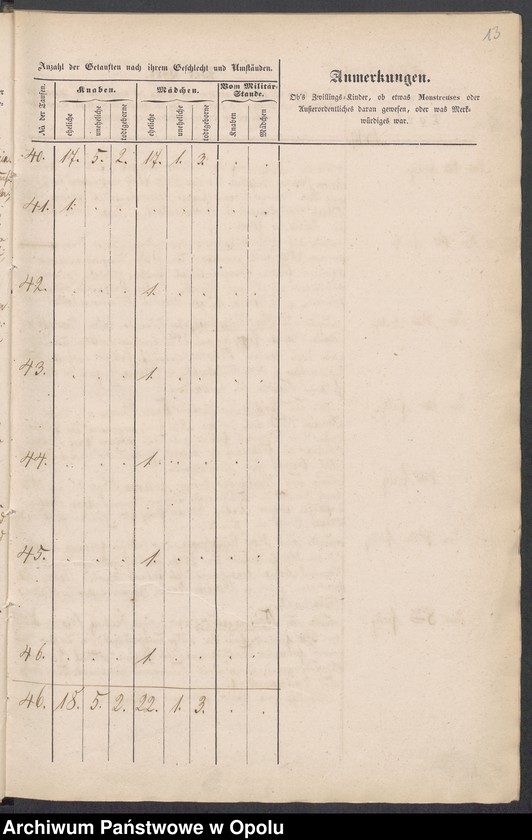 13
Anzahl der Getauften nach ihrem Geschlecht und Umständen.
Anmerkungen.
Ob's Zwillings-Kinder, ob etwas Monstreuses oder
Außerordentliches daran gewesen, oder was Merk-
würdiges war.
№ der Taufen.
Knaben. Mädchen. Vom Militär-
Stande.
eheliche uneheliche todtgeborne eheliche uneheliche todtgeborne Knaben Mädchen
40. 17. 5. 2. 17. 1. 3. . .
41. 1. . . . . . . .
42. . . . 1. . . . .
43. . . . 1. . . . .
44. . . . 1. . . . .
45. . . . 1. . . . .
46. . . . 1. . . . .
46. 18. 5. 2. 22. 1. 3. . .
Archiwum Państwowe w Opolu